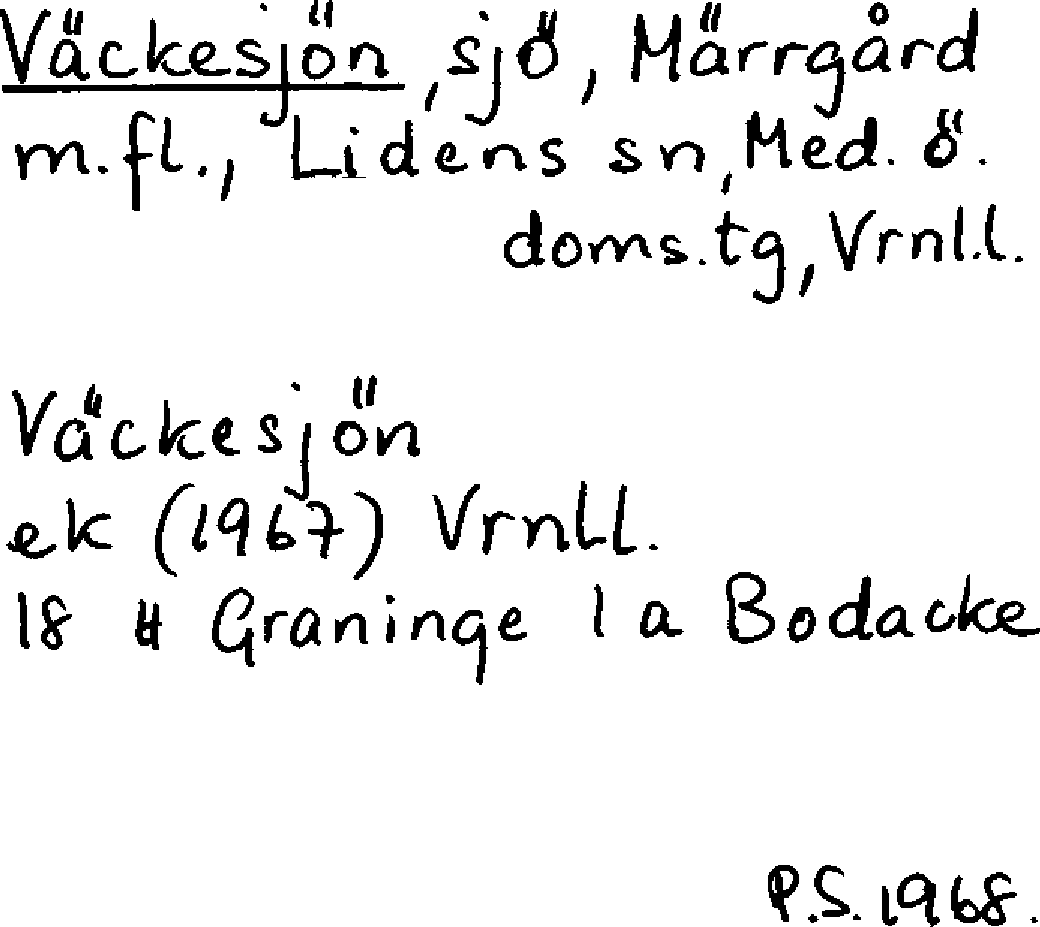 Väckesjön, sjö, Märrgård
m.fl., Lidens sn, Med. ö.
doms.tg, Vrnl.l.
Väckesjön
ek (1967) Vrnll.
18 H Graninge 1 a Bodacke
P.S. 1968.